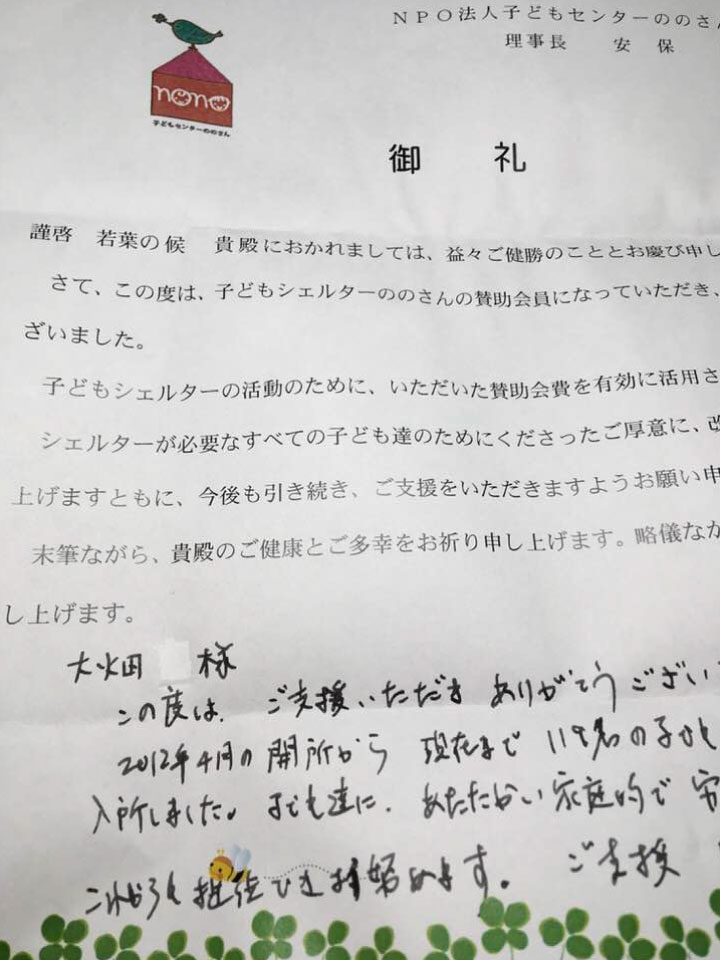 NPO法人子どもセンターののさん
理事長　安　保
nono
子どもセンターののさん
御　礼
謹啓　若葉の候　貴殿におかれましては、益々ご健勝のこととお慶び申し
さて、この度は、子どもシェルターののさんの賛助会員になっていただき、
ざいました。
子どもシェルターの活動のために、いただいた賛助会費を有効に活用さ
シェルターが必要なすべての子ども達のためにくださったご厚意に、改
上げますともに、今後も引き続き、ご支援をいただきますようお願い申
末筆ながら、貴殿のご健康とご多幸をお祈り申し上げます。略儀なが
し上げます。
大畑　様
この度は、ご支援いただき ありがとうござい
2012年4月の開所から 現在まで 119名の子ども
入所しました。子ども達に、あたたかい家庭的で 安
これからも ます。ご支援